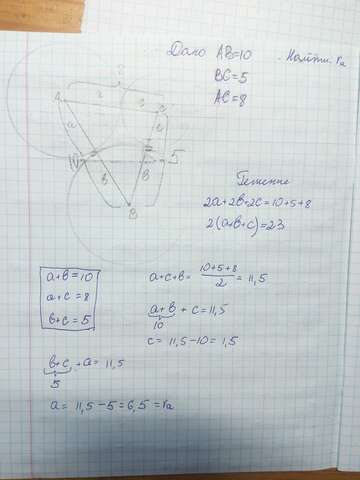 Дано AB=10
Найти ra
BC=5
AC=8
A
a
c
c
C
a
10
c
5
b
b
B
Решение
2a+2b+2c=10+5+8
2(a+b+c)=23
a+b=10
a+c=8
b+c=5
a+c+b= 10+5+8/2 = 11,5
a+b + c=11,5
10
c=11,5-10=1,5
b+c +a=11,5
5
a= 11,5-5=6,5=ra